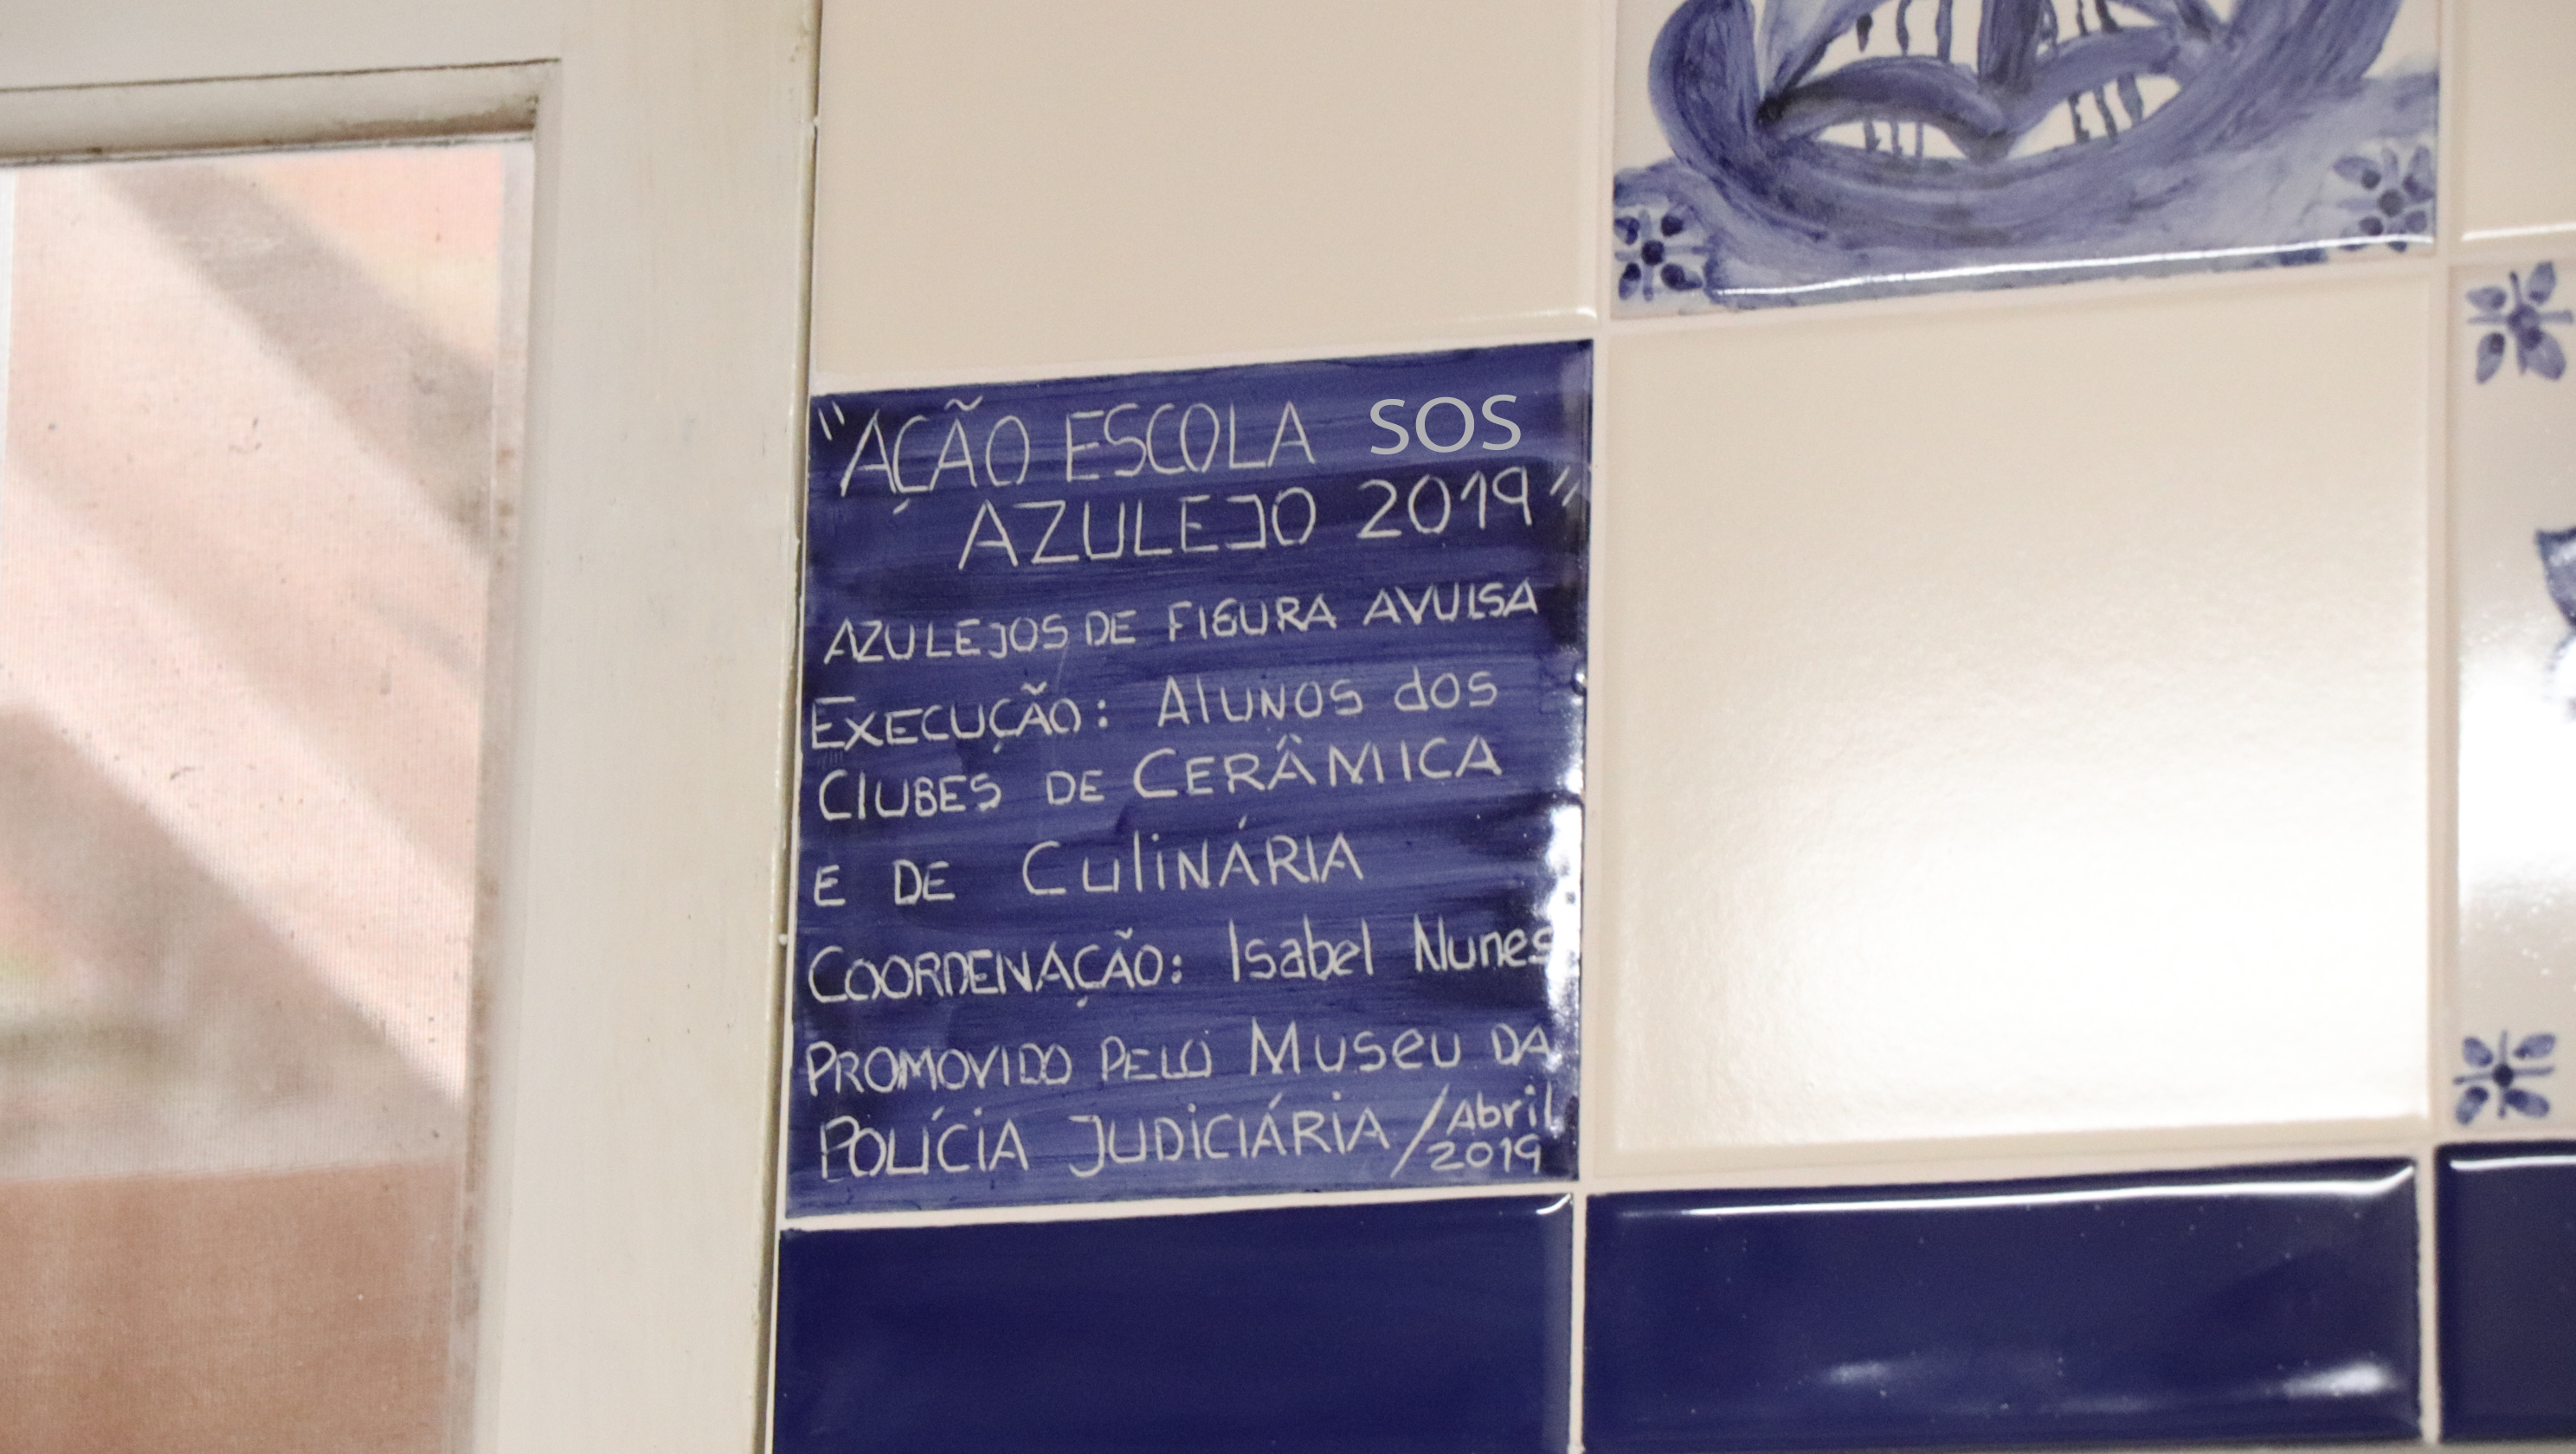 "AÇÃO ESCOLA SOS
AZULEJO 2019"
AZULEJOS DE FIGURA AVULSA
EXECUÇÃO: AlUNOS dos
ClUBES DE CERÂMICA
E DE CuliNÁRIA
COORDENAÇÃO: Isabel Nunes
PROMOVIDO PELO MuseU DA
POLÍCiA JUDiCIÁRiA / Abril
2019